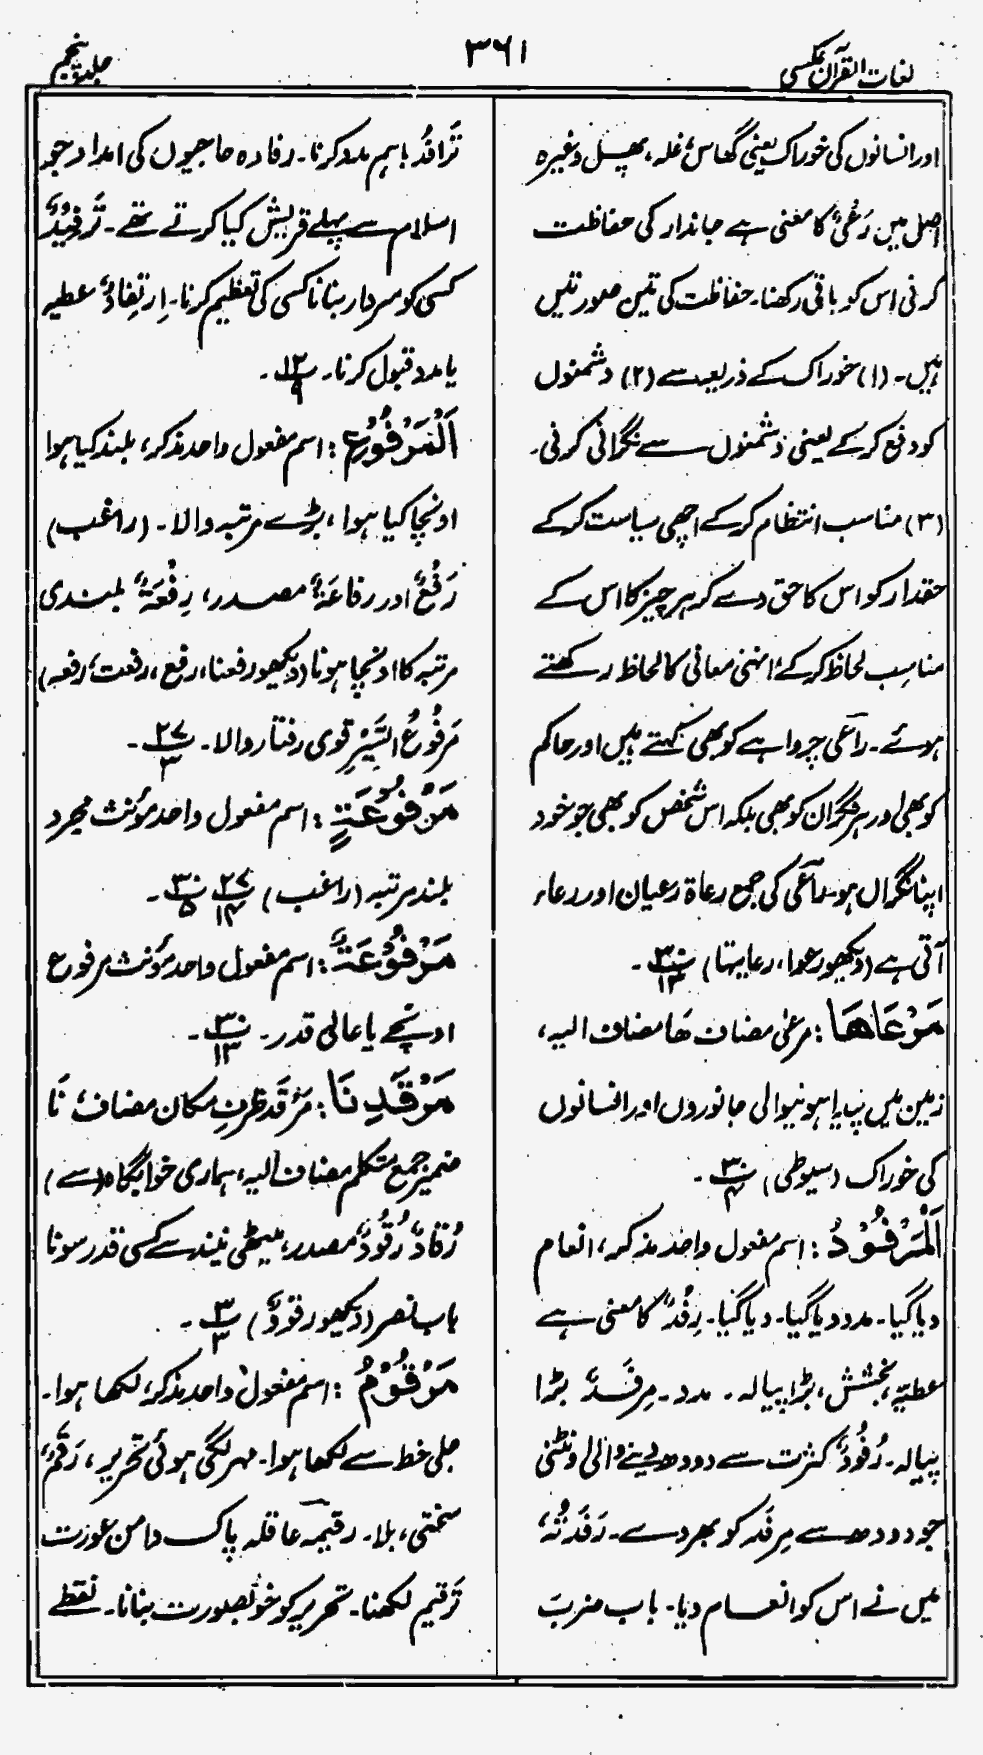 لغات القرآن عکسی
۳۶۱
جلد پنجم
اور انسانوں کی خوراک یعنی گھاس، غلہ، پھل وغیرہ
اصل میں رَعْیٌ کا معنی ہے جاندار کی حفاظت
کرنی اس کو باقی رکھنا۔ حفاظت کی تین صورتیں
ہیں۔ (۱) خوراک کے ذریعہ سے (۲) دشمنوں
کو دفع کر کے یعنی دشمنوں سے نگرانی کرنی۔
(۳) مناسب انتظام کر کے اچھی سیاست کر کے
حقدار کو اس کا حق دے کر ہر چیز کا اس کے
مناسب لحاظ کر کے، انہی معانی کا لحاظ رکھتے
ہوئے۔ راعی چرواہے کو بھی کہتے ہیں اور حاکم
کو بھی اور ہر نگران کو بھی بلکہ اس شخص کو بھی جو خود
اپنا نگراں ہو۔ راعی کی جمع رعاۃ رعیان اور رعاء
آتی ہے (دیکھو رعوا، رعایتہا) ۳۰/۱۳۔
مَرْعَاهَا : مرعیٰ مضاف ھا مضاف الیہ،
زمین میں پیدا ہونیوالی جانوروں اور انسانوں
کی خوراک (سیوطی) ۳۰/۴۔
اَلْمَرْفُوْدُ : اسم مفعول واحد مذکر، انعام
دیا گیا۔ مدد دیا گیا۔ دیا گیا۔ رِفْدٌ کا معنی ہے
عطیّہ، بخشش، بڑا پیالہ۔ مدد۔ مِرفَدٌ بڑا
پیالہ۔ رُفُودٌ کثرت سے دودھ دینے والی اونٹنی
جو دودھ سے مِرفَد کو بھر دے۔ رَفَدْتُہٗ،
میں نے اس کو انعام دیا۔ باب ضربَ
تَرَافُدٌ باہم مدد کرنا۔ رفادہ حاجیوں کی امداد جو
اسلام سے پہلے قریش کیا کرتے تھے۔ تَرْفِیْدٌ
کسی کو سردار بنانا کسی کی تعظیم کرنا۔ اِرتِفادٌ عطیہ
یا مدد قبول کرنا۔ ۱۲/۹۔
اَلْمَرْفُوْعِ : اسم مفعول واحد مذکر، بلند کیا ہوا
اونچا کیا ہوا، بڑے مرتبہ والا۔ (راغب)
رَفْعٌ اور رفاعَۃٌ مصدر، رِفْعَۃٌ بلندی
مرتبہ کا اونچا ہونا (دیکھو رفعنا، رفع، رفعت، رفعہ)
مَرفُوعُ السَّیْرِ قوی رفتار والا۔ ۲۷/۳۔
مَرْفُوْعَةٍ : اسم مفعول واحد مؤنث مجرد
بلند مرتبہ (راغب) ۲۷/۱۴ ۳۰/۵۔
مَرْفُوْعَةٌ : اسم مفعول واحد مؤنث مرفوع
اونچے یا عالی قدر۔ ۳۰/۱۳۔
مَرْقَدِنَا : مَرْقَد ظرفِ مکان مضاف، نَا
ضمیر جمع متکلم مضاف الیہ، ہماری خوابگاہ (سے)
رُقادٌ رُقُودٌ مصدر، میٹھی نیند سے کسی قدر سونا
باب نصر (دیکھو رقودٌ) ۳/۳۔
مَرْقُوْمٌ : اسم مفعول واحد مذکر، لکھا ہوا۔
جلی خط سے لکھا ہوا۔ مہر لگی ہوئی تحریر، رَقْمٌ،
سختی، بلا۔ رقیمۃ عاقلہ پاک دامن عورت
تَرقیم لکھنا۔ تحریر کو خوبصورت بنانا۔ نقطے